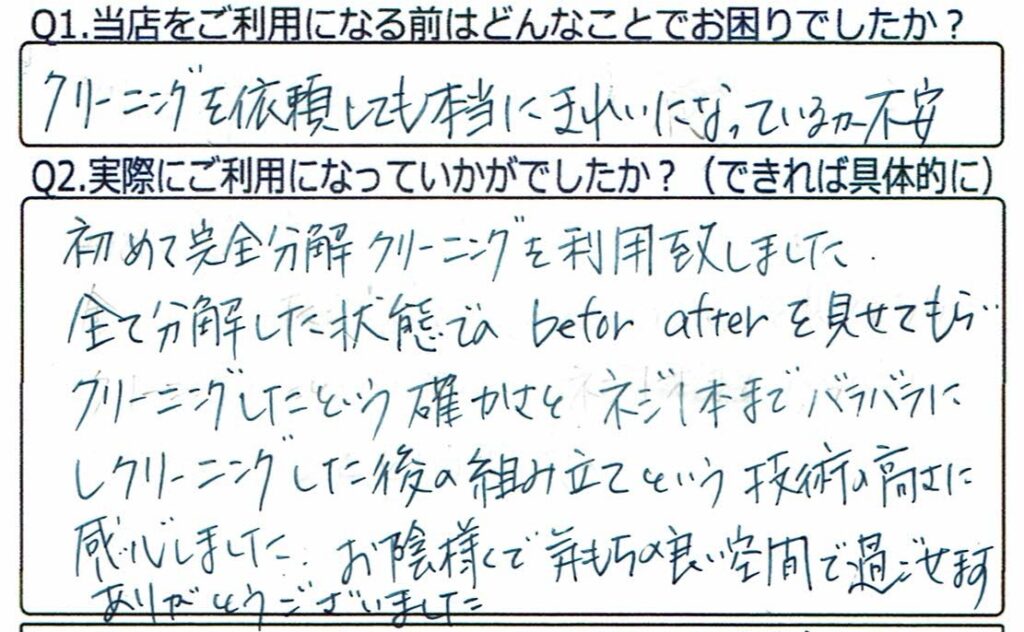 Q1.当店をご利用になる前はどんなことでお困りでしたか？
クリーニングを依頼しても本当にきれいになっているか不安
Q2.実際にご利用になっていかがでしたか？（できれば具体的に）
初めて完全分解クリーニングを利用致しました.
全て分解した状態での befor after を見せてもらい
クリーニングしたという確かさと ネジ1本まで バラバラに
しクリーニングした後の組み立てという 技術の高さに
感心しました. お陰様で 気もちの良い空間で過ごせます
ありがとうございました